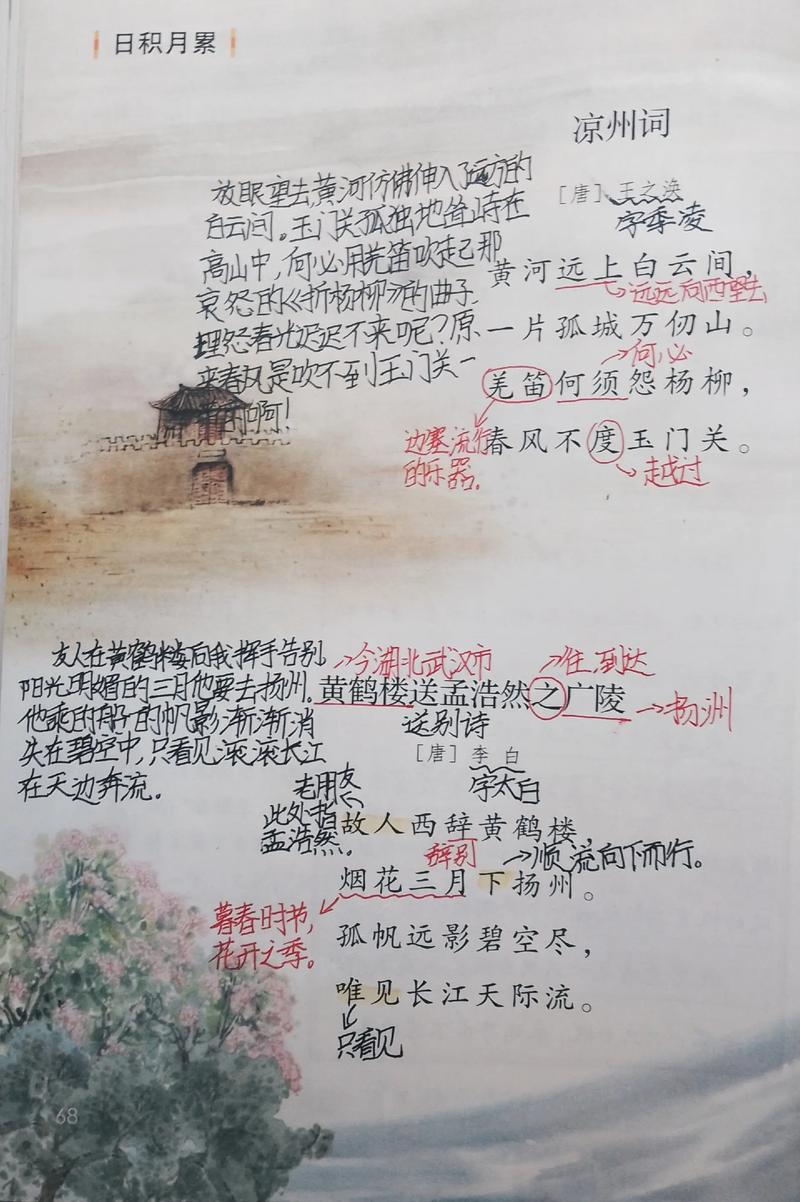 日积月累
凉州词
[唐] 王之涣
字季凌
黄河远上白云间，
远远向西望去
一片孤城万仞山。
何必
羌笛何须怨杨柳，
边塞流行
的乐器。
春风不度玉门关。
越过
放眼望去,黄河仿佛伸入了远方的
白云间。玉门关孤独地耸峙在
高山中,何必用羌笛吹起那
哀怨的《折杨柳》的曲子
埋怨春光迟迟不来呢?原
来春风是吹不到玉门关一
的啊!
今湖北武汉市
往、到达
黄鹤楼送孟浩然之广陵
扬州
送别诗
[唐] 李白
字太白
友人在黄鹤楼向我挥手告别
阳光明媚的三月他要去扬州。
他乘的船的帆影渐渐消
失在碧空中,只看见滚滚长江
在天边奔流。
老朋友
此处指
孟浩然。
故人西辞黄鹤楼，
辞别
顺流向下而行。
烟花三月下扬州。
暮春时节,
花开之季。
孤帆远影碧空尽，
唯见长江天际流。
只看见
68